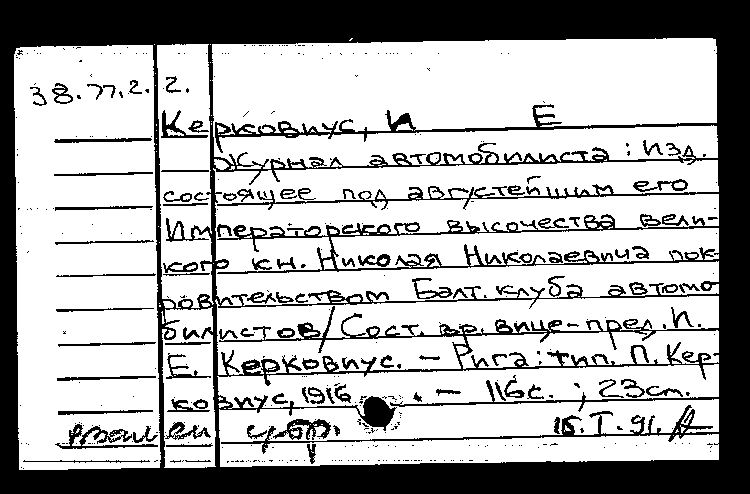 38.77.2.2.
Керковиус, И Е
Журнал автомобилиста : Изд.
состоящее под августейшим его
Императорского высочества вели-
кого кн. Николая Николаевича пок-
ровительством Балт. клуба автомо
билистов/ Сост. вр. вице-пред. И.
Е. Керковиус. — Рига : тип. П. Кер-
ковиус, 1916 . — 116с. ; 23см.
15.I.91.